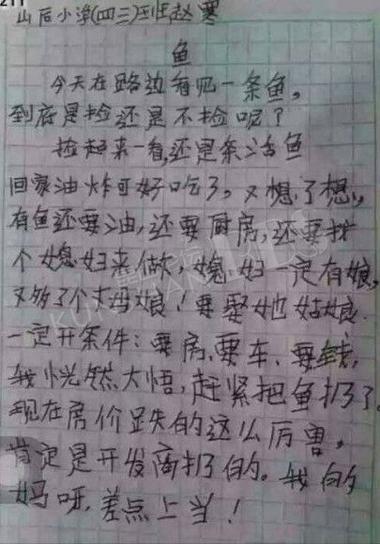 山后小学(四三)班赵寒
鱼
今天在路边看见一条鱼，
到底是捡还是不捡呢？
捡起来一看，还是条活鱼
回家油炸可好吃了，又想了想，
有鱼还要油，还要厨房，还要找
个媳妇来做，媳妇一定有娘，
又多了个丈母娘！要娶她姑娘
一定开条件：要房，要车，要钱，
我恍然大悟，赶紧把鱼扔了。
现在房价跌的这么厉害，
肯定是开发商扔的。我的
妈呀，差点上当！